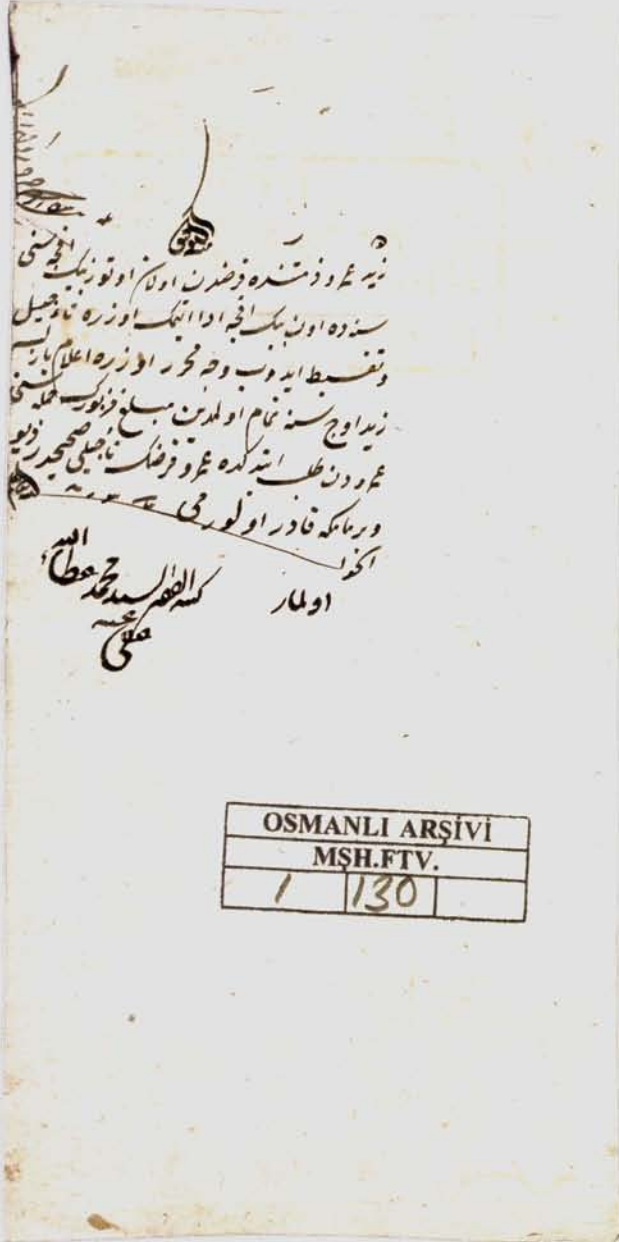 زيد عمرو ذمتنده قرضدن اولان اوتوز بيك اقچه سنى
سنه ده اون بيك اقچه ادا ايتمك اوزره تأجيل
و تقسيط ايدوب وجه محرر اوزره اعلام
زيد اوج سنه تمام اولمدين مبلغ مزبورك جمله سنى
عمرودن طلب ايتدكده عمرو قرضك تأجيلى صحيحدر ديو
ويرمامكه قادر اولورمى
الجواب
اولماز
كتبه الفقير السيد محمد عطاء الله
عفى عنه
OSMANLI ARŞİVİ
MŞH.FTV.
1 130